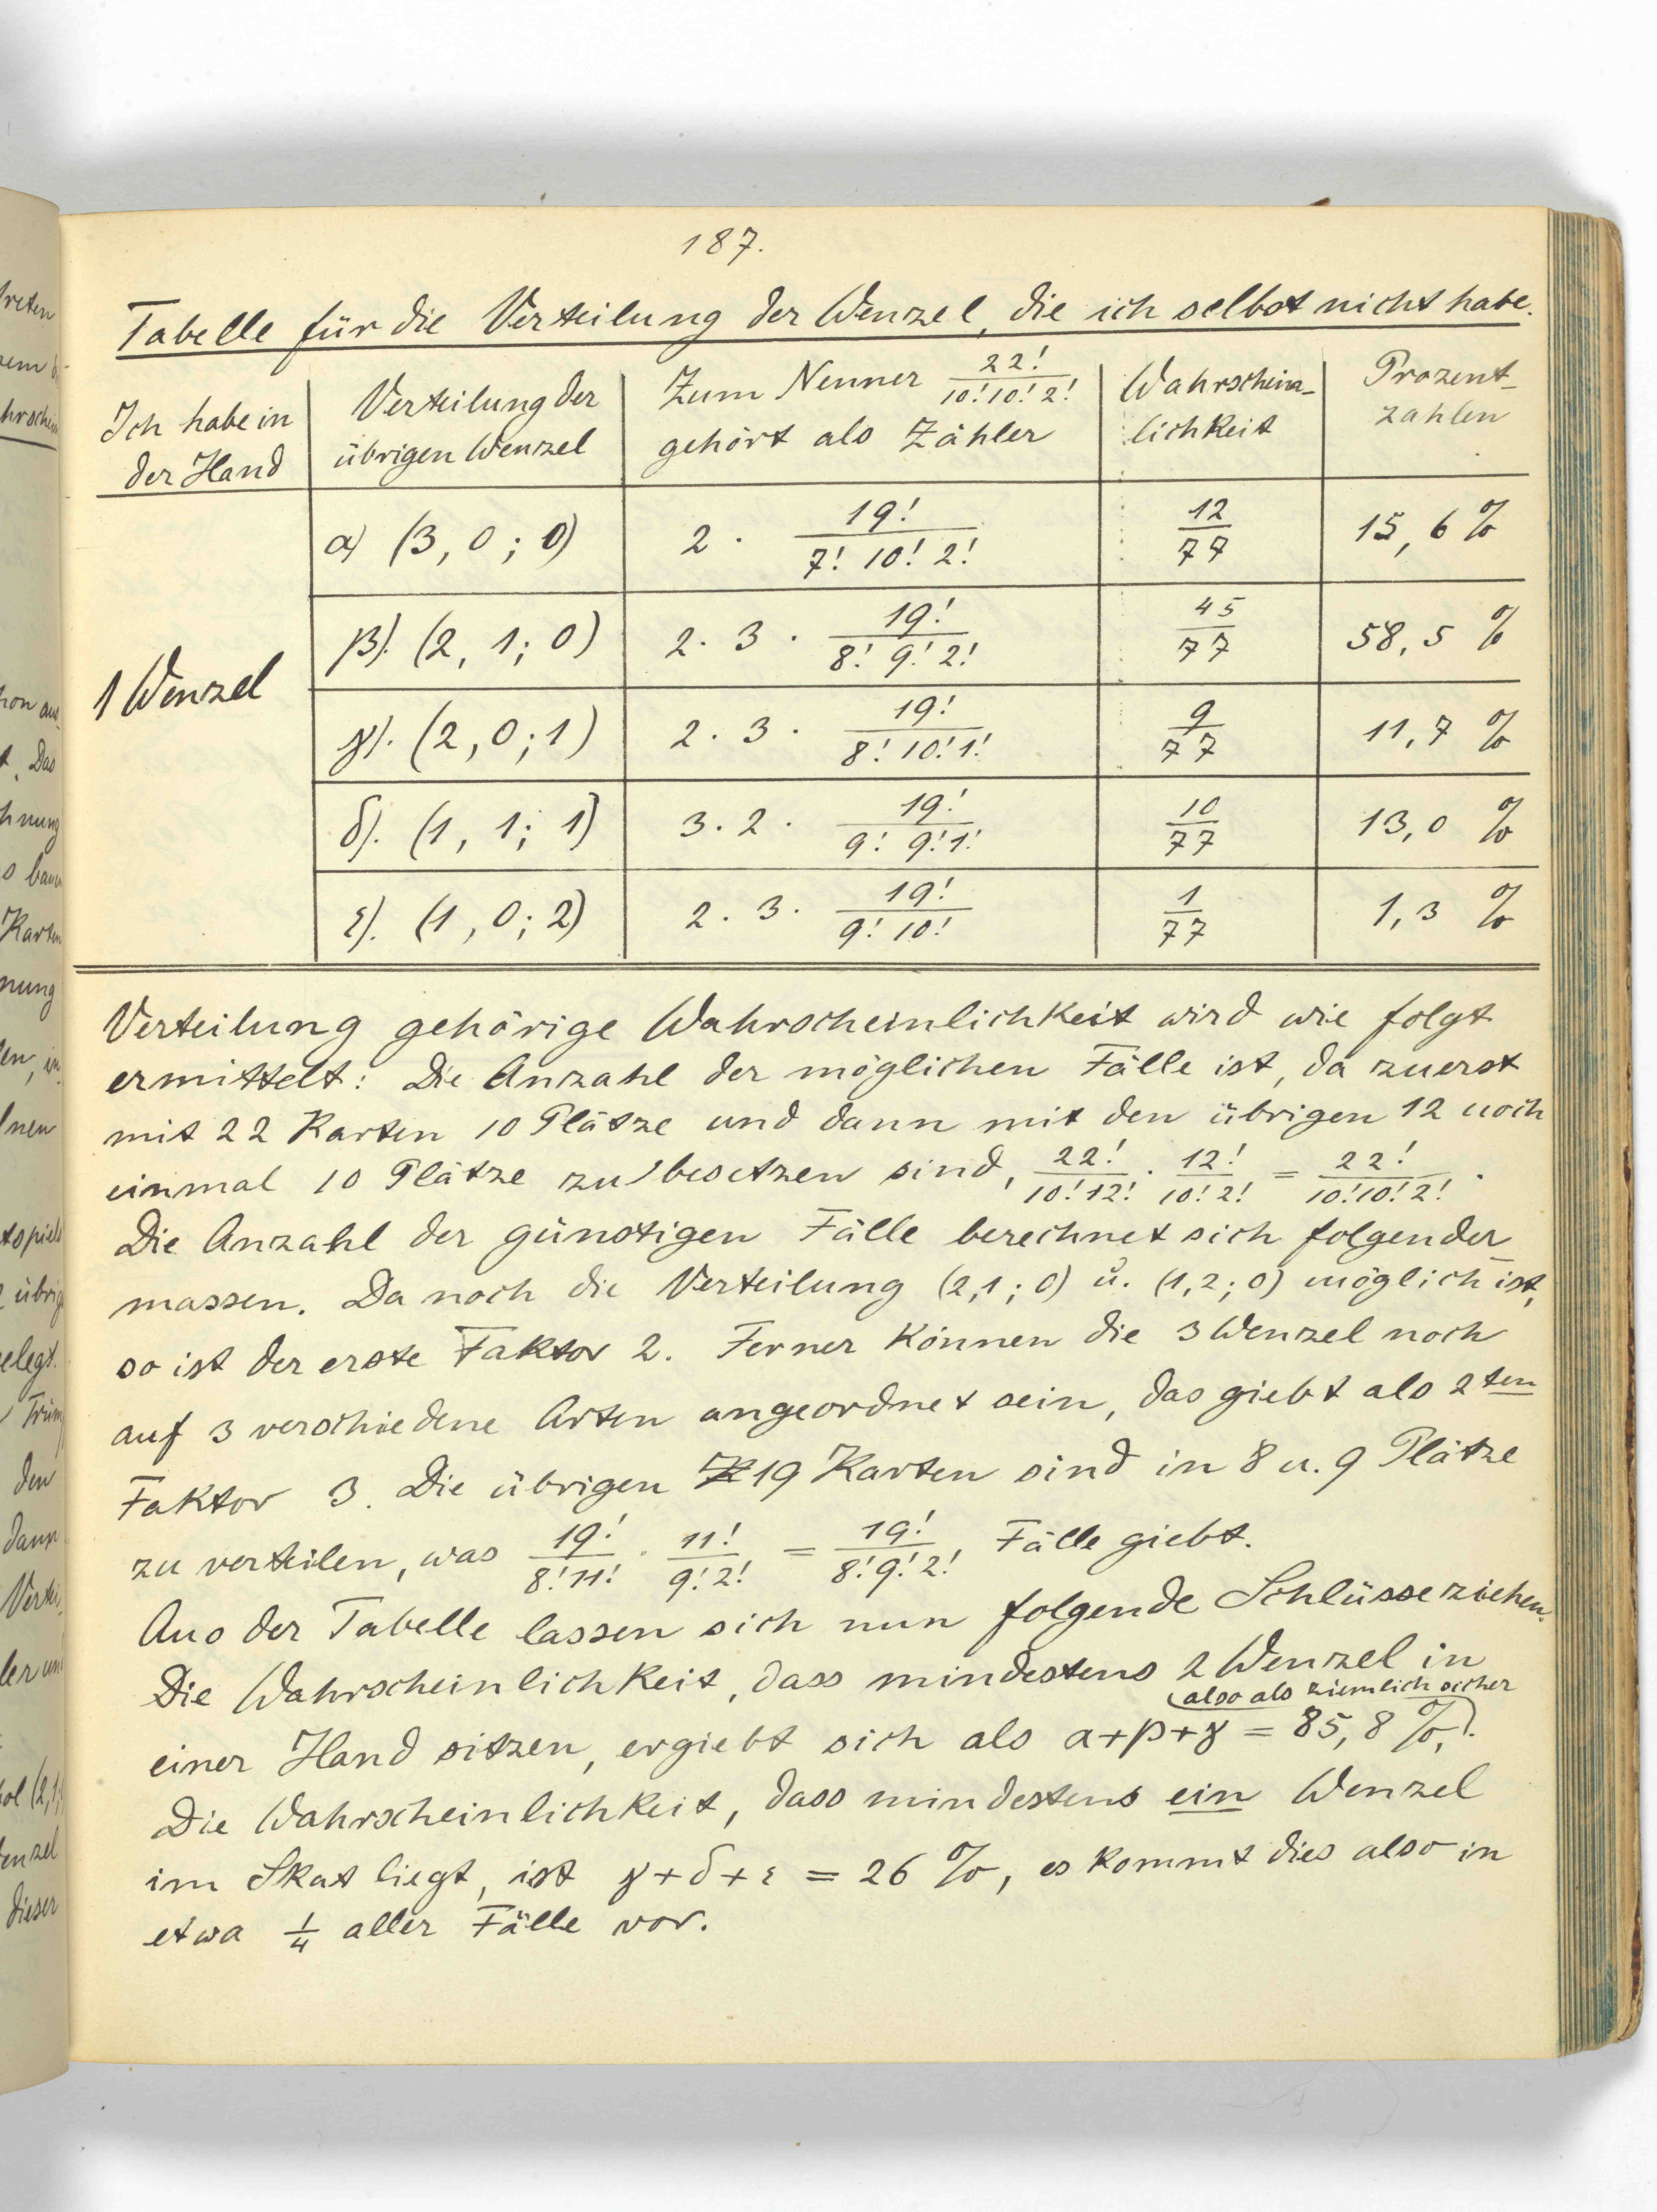 187.
Tabelle für die Verteilung der Wenzel, die ich selbst nicht habe.
Ich habe in der Hand | Verteilung der übrigen Wenzel | Zum Nenner 22!/10!10!2! gehört als Zähler | Wahrschein-lichkeit | Prozent-zahlen
1 Wenzel
α) (3, 0; 0) | 2 · 19!/7! 10! 2! | 12/77 | 15,6 %
β). (2, 1; 0) | 2 · 3 · 19!/8! 9! 2! | 45/77 | 58,5 %
γ). (2, 0; 1) | 2 · 3 · 19!/8! 10! 1! | 9/77 | 11,7 %
δ). (1, 1; 1) | 3 · 2 · 19!/9! 9! 1! | 10/77 | 13,0 %
ε). (1, 0; 2) | 2 · 3 · 19!/9! 10! | 1/77 | 1,3 %
Verteilung gehörige Wahrscheinlichkeit wird wie folgt
ermittelt: Die Anzahl der möglichen Fälle ist, da zuerst
mit 22 Karten 10 Plätze und dann mit den übrigen 12 noch
einmal 10 Plätze zu besetzen sind, 22!/10!12! · 12!/10!2! = 22!/10!10!2! .
Die Anzahl der günstigen Fälle berechnet sich folgender
massen. Da noch die Verteilung (2,1; 0) u. (1,2; 0) möglich ist,
so ist der erste Faktor 2. Ferner können die 3 Wenzel noch
auf 3 verschiedene Arten angeordnet sein, das giebt als 2ten
Faktor 3. Die übrigen 19 Karten sind in 8 u. 9 Plätze
zu verteilen, was 19!/8!11! · 11!/9!2! = 19!/8!9!2! Fälle giebt.
Aus der Tabelle lassen sich nun folgende Schlüsse ziehen.
Die Wahrscheinlichkeit, dass mindestens 2 Wenzel in
(also als ziemlich sicher
einer Hand sitzen, ergiebt sich als α+β+γ = 85,8 %,).
Die Wahrscheinlichkeit, dass mindestens ein Wenzel
im Skat liegt, ist γ+δ+ε = 26 %, es kommt dies also in
etwa 1/4 aller Fälle vor.